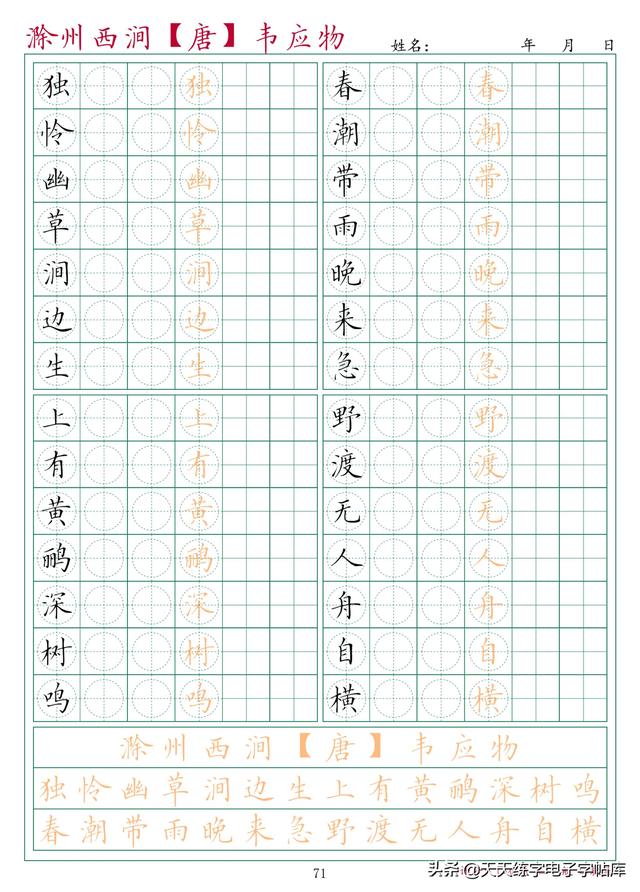 滁州西涧【唐】韦应物
姓名： 年 月 日
独 独 春 春
怜 怜 潮 潮
幽 幽 带 带
草 草 雨 雨
涧 涧 晚 晚
边 边 来 来
生 生 急 急
上 上 野 野
有 有 渡 渡
黄 黄 无 无
鹂 鹂 人 人
深 深 舟 舟
树 树 自 自
鸣 鸣 横 横
滁州西涧【唐】韦应物
独怜幽草涧边生上有黄鹂深树鸣
春潮带雨晚来急野渡无人舟自横
71
头条@天天练字电子字帖库